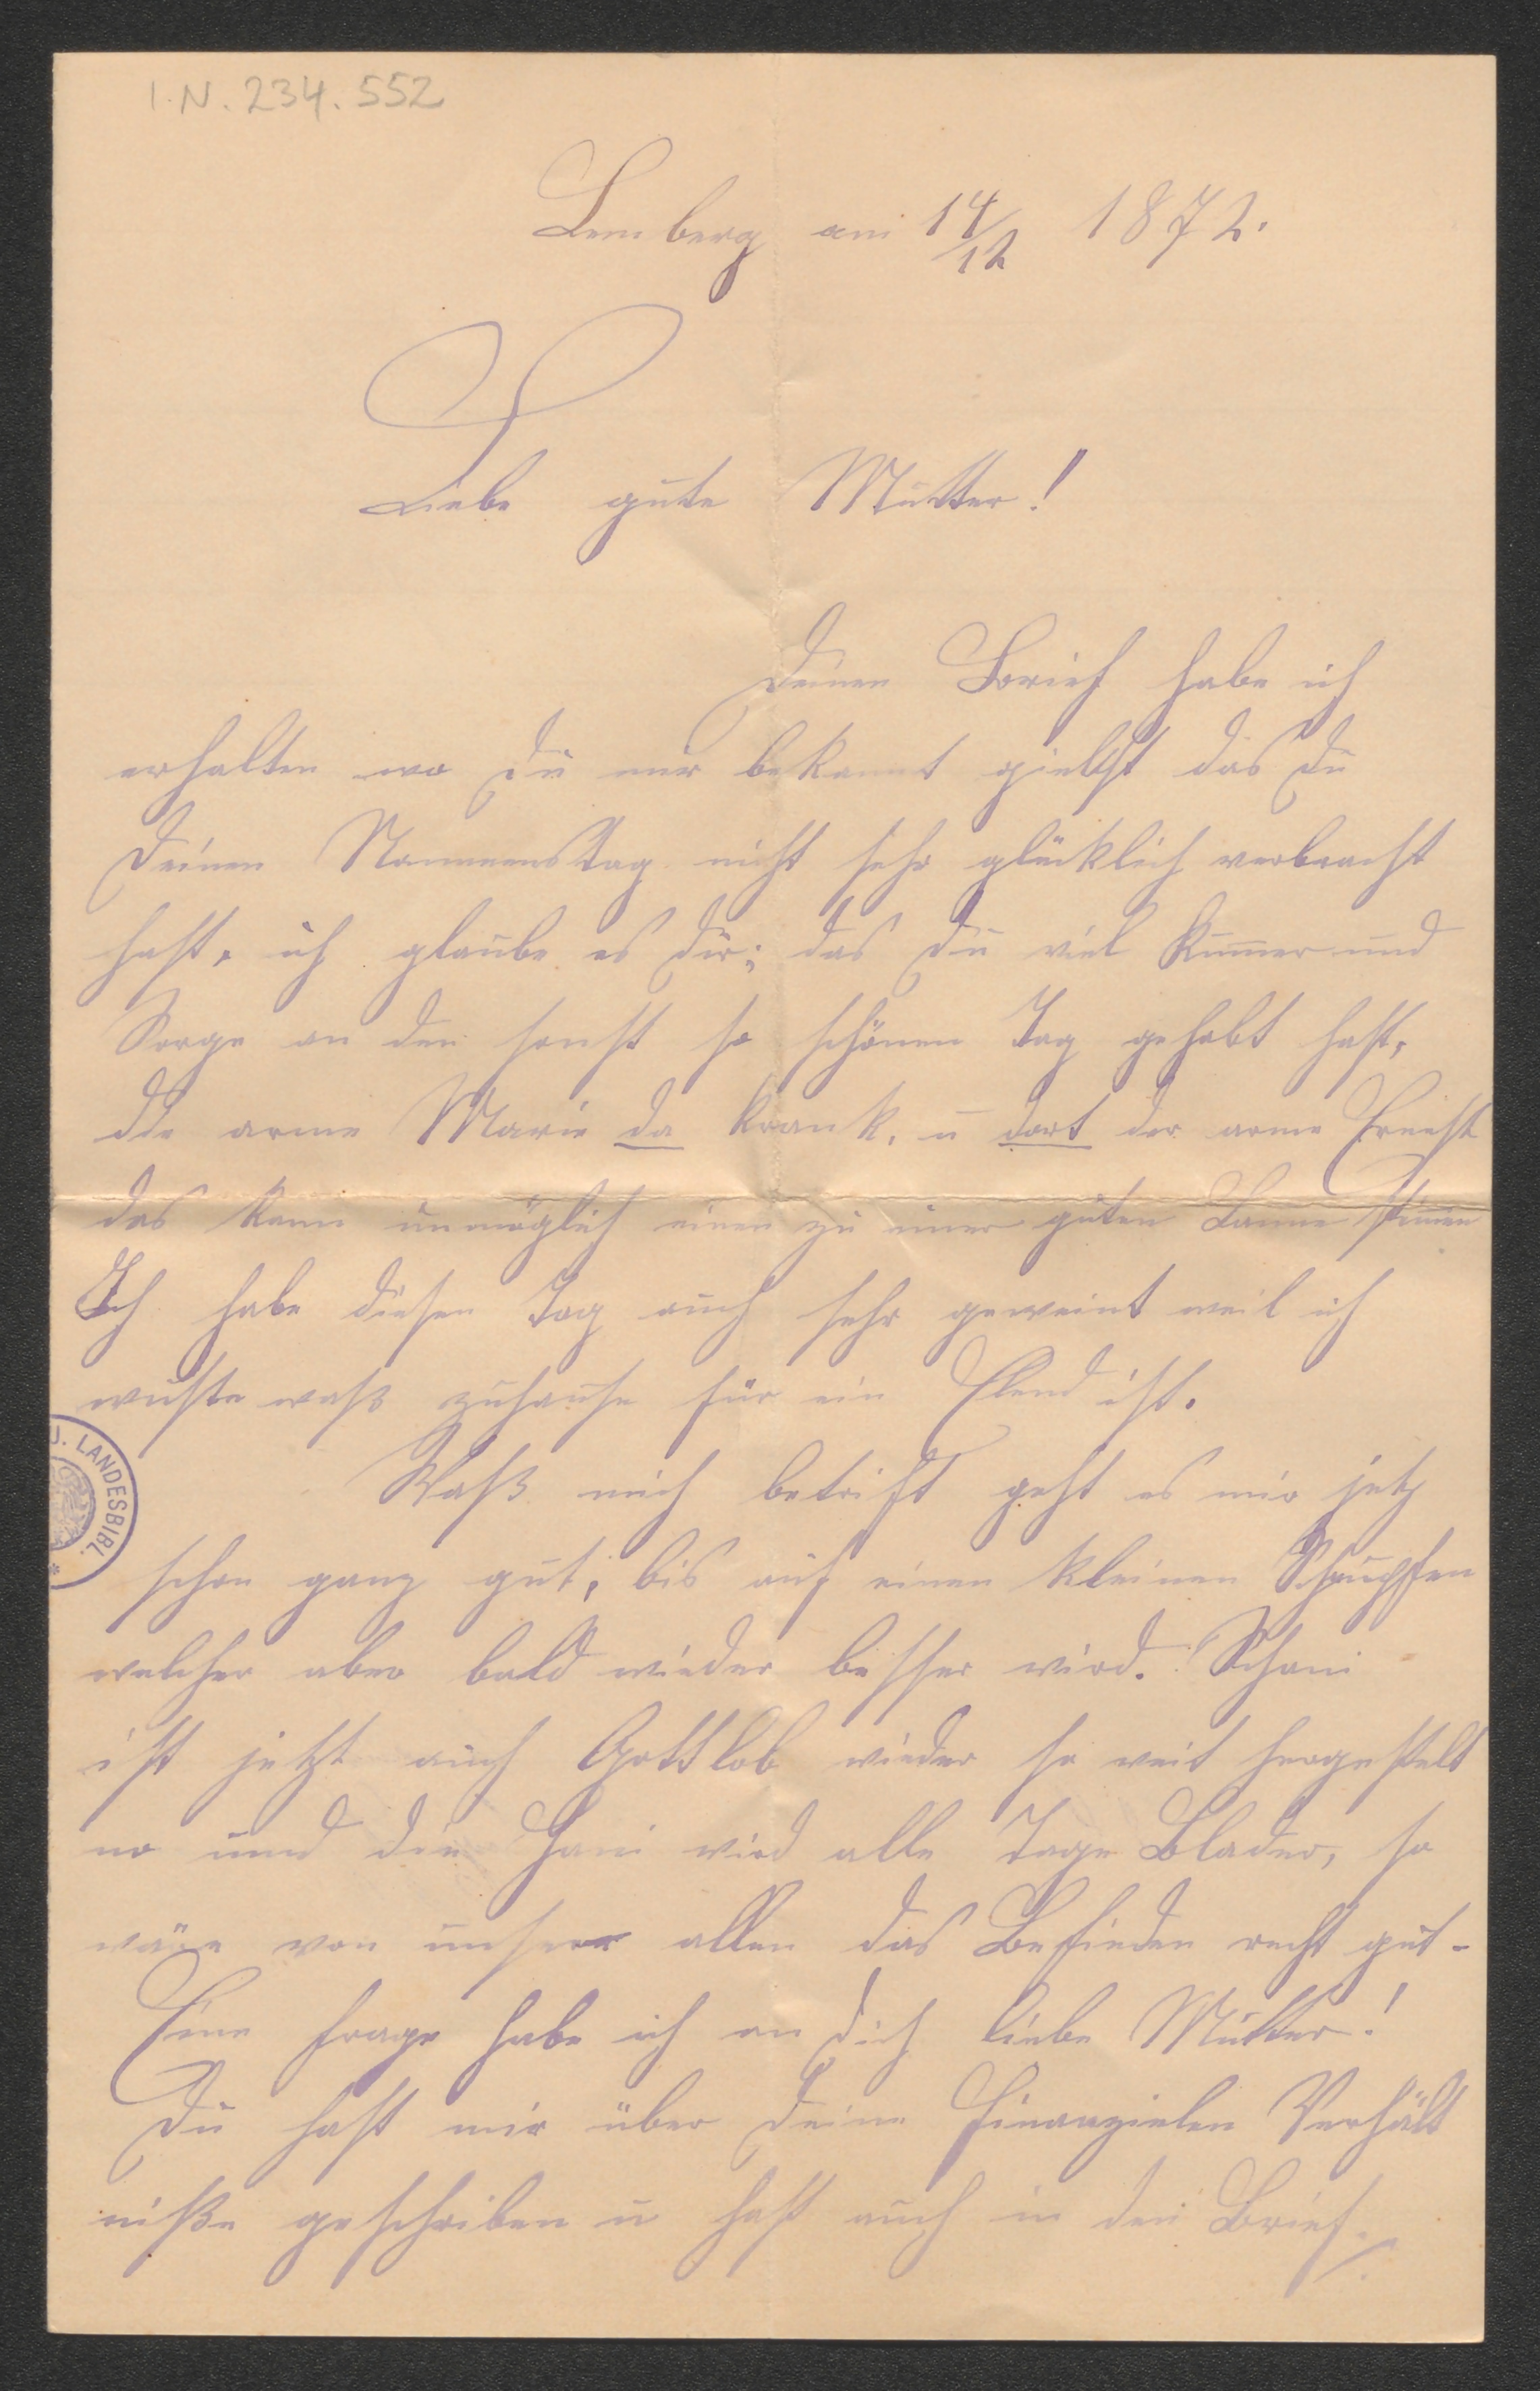 I.N. 234.552
Lemberg am 14/12 1872.
Liebe gute Mutter!
Deinen Brief habe ich
erhalten wo Du mir bekannt giebst das Du
Deinen Nammenstag nicht sehr glücklich verbracht
hast, ich glaube es Dir; das Du viel Kum̅er und
Sorge an den sonst so schönen Tag gehabt hast,
die arme Marie da krank, u dort der arme Ernest
das kann unmöglich einen zu einer guten Laune stim̅en
Ich habe diesen Tag auch sehr geweint weil ich
wuste waß zuhause für ein Elend ist.
Waß mich betrift geht es mir jetz
schon ganz gut, bis auf einen kleinen Schnupfen
welcher aber bald wieder besser wird. Schani
ist jetzt auch Gottlob wieder so weit hergestelt
no und die Hani wird alle Tage Blader, so
wäre von unserr allen das Befinden recht gut-
Eine Frage habe ich an Dich liebe Mutter!
Du hast mir über Deine Finanzielen Verhält
niße geschriben u hast auch in den Brief
J. LANDESBIBL. *